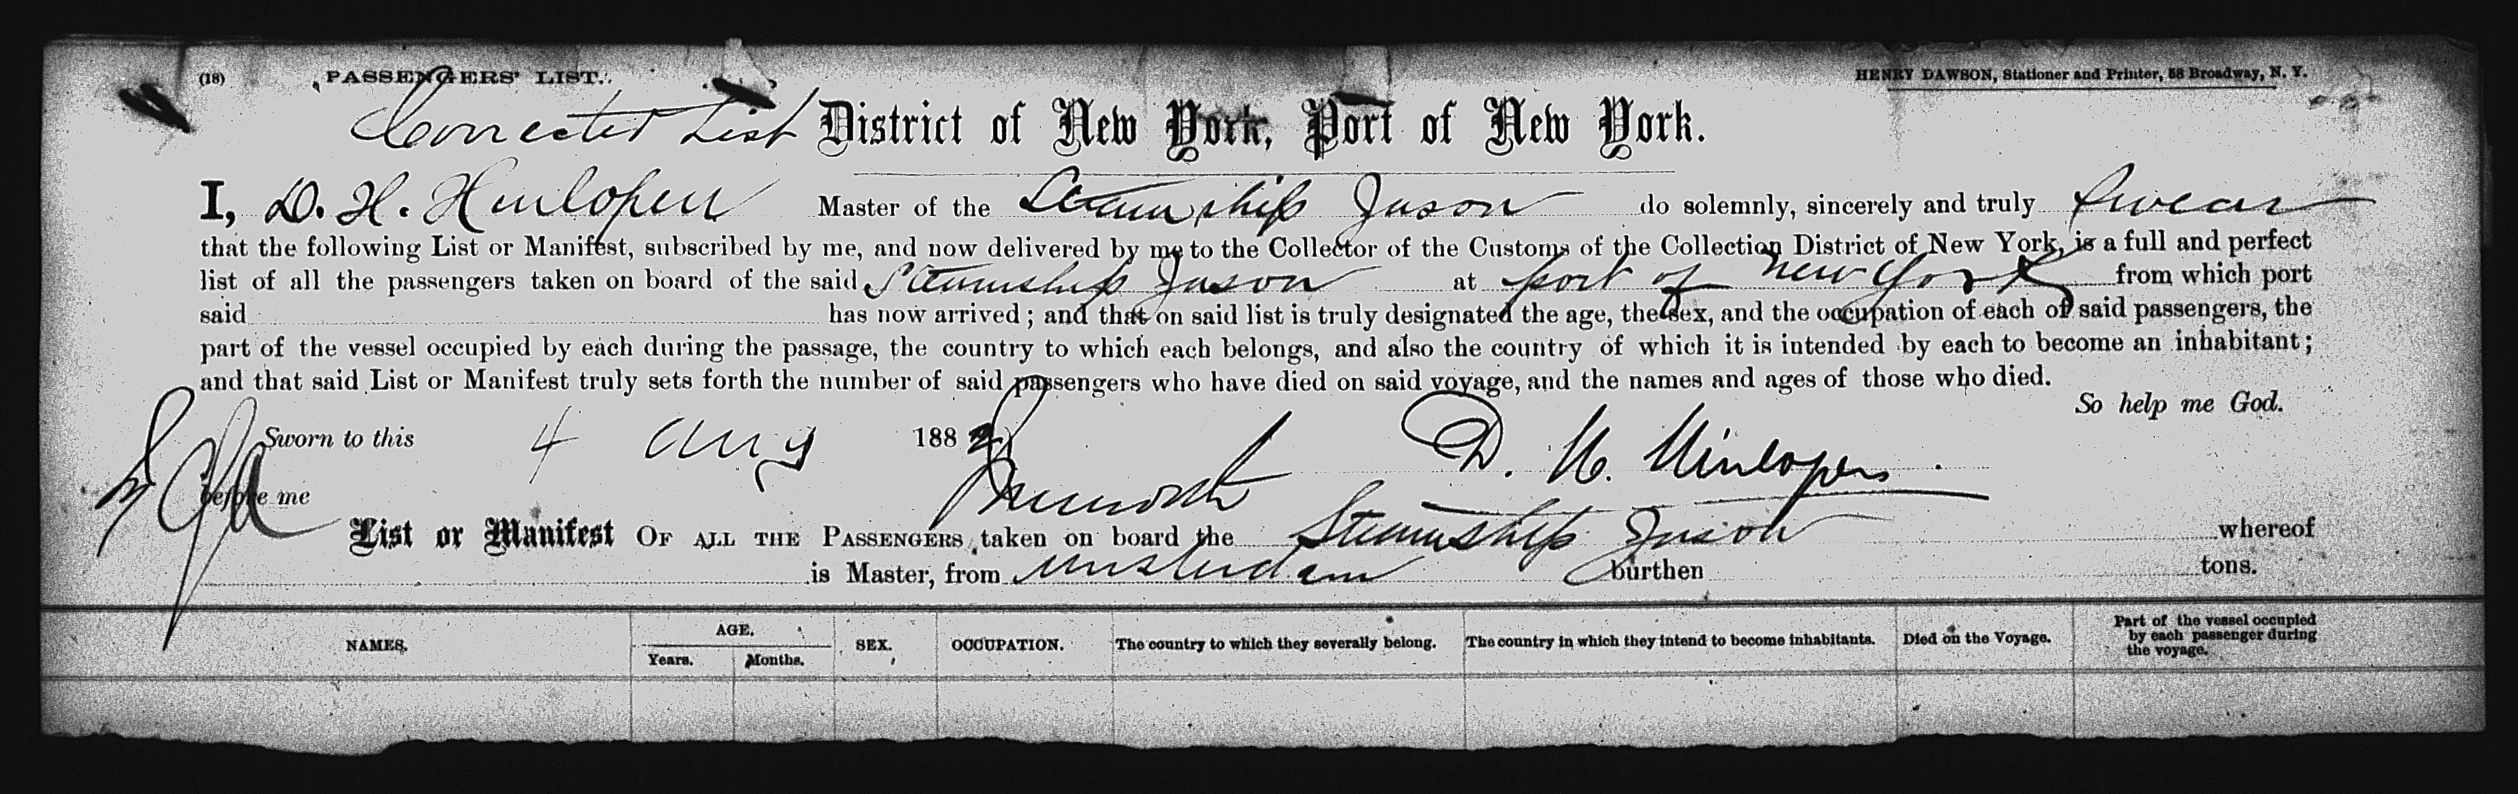 (18) PASSENGERS' LIST. HENRY DAWSON, Stationer and Printer, 58 Broadway, N. Y.
Corrected List District of New York, Port of New York.
I, D. H. Hinlopen Master of the Steamship Jason do solemnly, sincerely and truly Swear
that the following List or Manifest, subscribed by me, and now delivered by me to the Collector of the Customs of the Collection District of New York, is a full and perfect
list of all the passengers taken on board of the said Steamship Jason at port of New York from which port
said has now arrived; and that on said list is truly designated the age, the sex, and the occupation of each of said passengers, the
part of the vessel occupied by each during the passage, the country to which each belongs, and also the country of which it is intended by each to become an inhabitant;
and that said List or Manifest truly sets forth the number of said passengers who have died on said voyage, and the names and ages of those who died.
So help me God.
Sworn to this 4 Aug 188 D. H. Hinlopen.
before me
List or Manifest OF ALL THE PASSENGERS taken on board the Steamship Jason whereof
is Master, from Amsterdam burthen tons.
NAMES. AGE. Years. Months. SEX. OCCUPATION. The country to which they severally belong. The country in which they intend to become inhabitants. Died on the Voyage. Part of the vessel occupied
by each passenger during
the voyage.